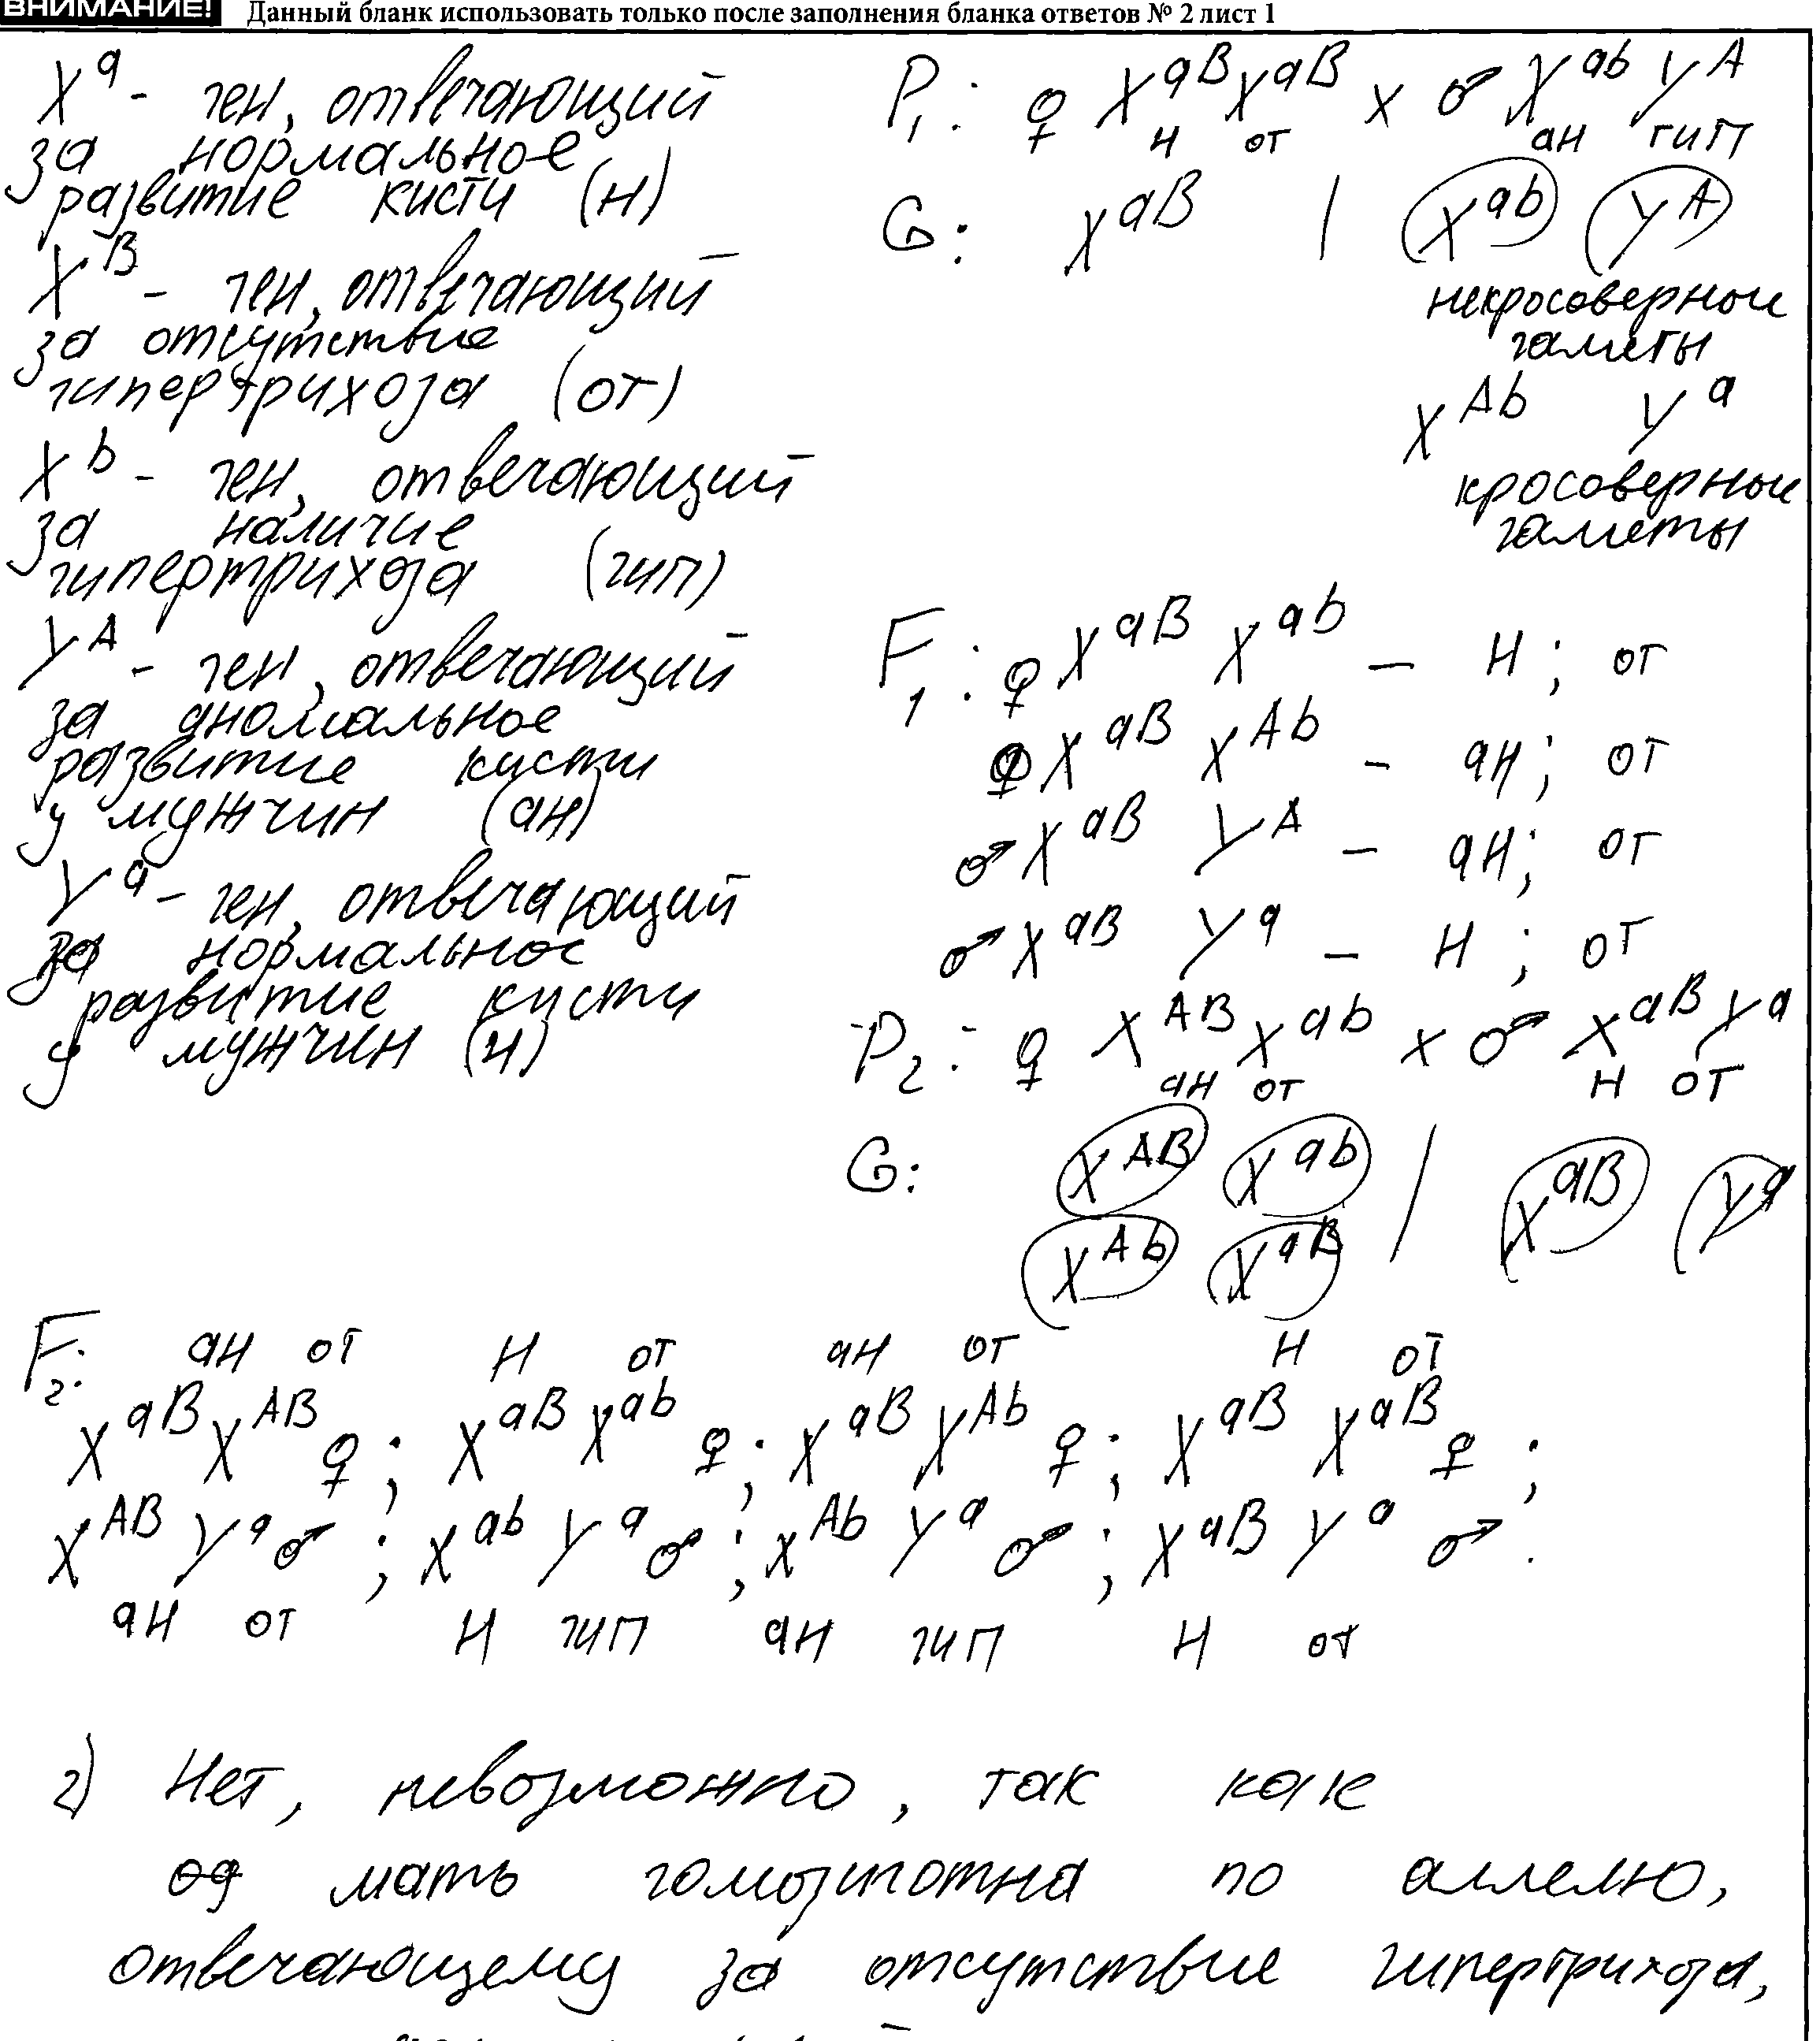 ВНИМАНИЕ! Данный бланк использовать только после заполнения бланка ответов № 2 лист 1
X^a - ген, отвечающий
за нормальное
развитие кисти (н)
X^B - ген, отвечающий
за отсутствие
гипертрихоза (от)
X^b - ген, отвечающий
за наличие
гипертрихоза (гип)
Y^A - ген, отвечающий
за аномальное
развитие кисти
у мужчин (ан)
Y^a - ген, отвечающий
за нормальное
развитие кисти
у мужчин (н)
P₁: ♀ X^aB X^aB x ♂ X^ab Y^A
н от ан гип
G: X^aB | X^ab Y^A
некросоверные
гаметы
X^Ab Y^a
кросоверные
гаметы
F₁: ♀ X^aB X^ab – н; от
♀ X^aB X^Ab – ан; от
♂ X^aB Y^A – ан; от
♂ X^aB Y^a – н; от
P₂: ♀ X^AB X^ab x ♂ X^aB Y^a
ан от н от
G: X^AB X^ab | X^aB Y^a
X^Ab X^aB
F₂: ан от н от ан от н от
X^aB X^AB ♀; X^aB X^ab ♀; X^aB X^Ab ♀; X^aB X^aB ♀;
X^AB Y^a ♂; X^ab Y^a ♂; X^Ab Y^a ♂; X^aB Y^a ♂.
ан от н гип ан гип н от
г) Нет, невозможно, так как
мать гомозиготна по аллелю,
отвечающему за отсутствие гипертрихоза,